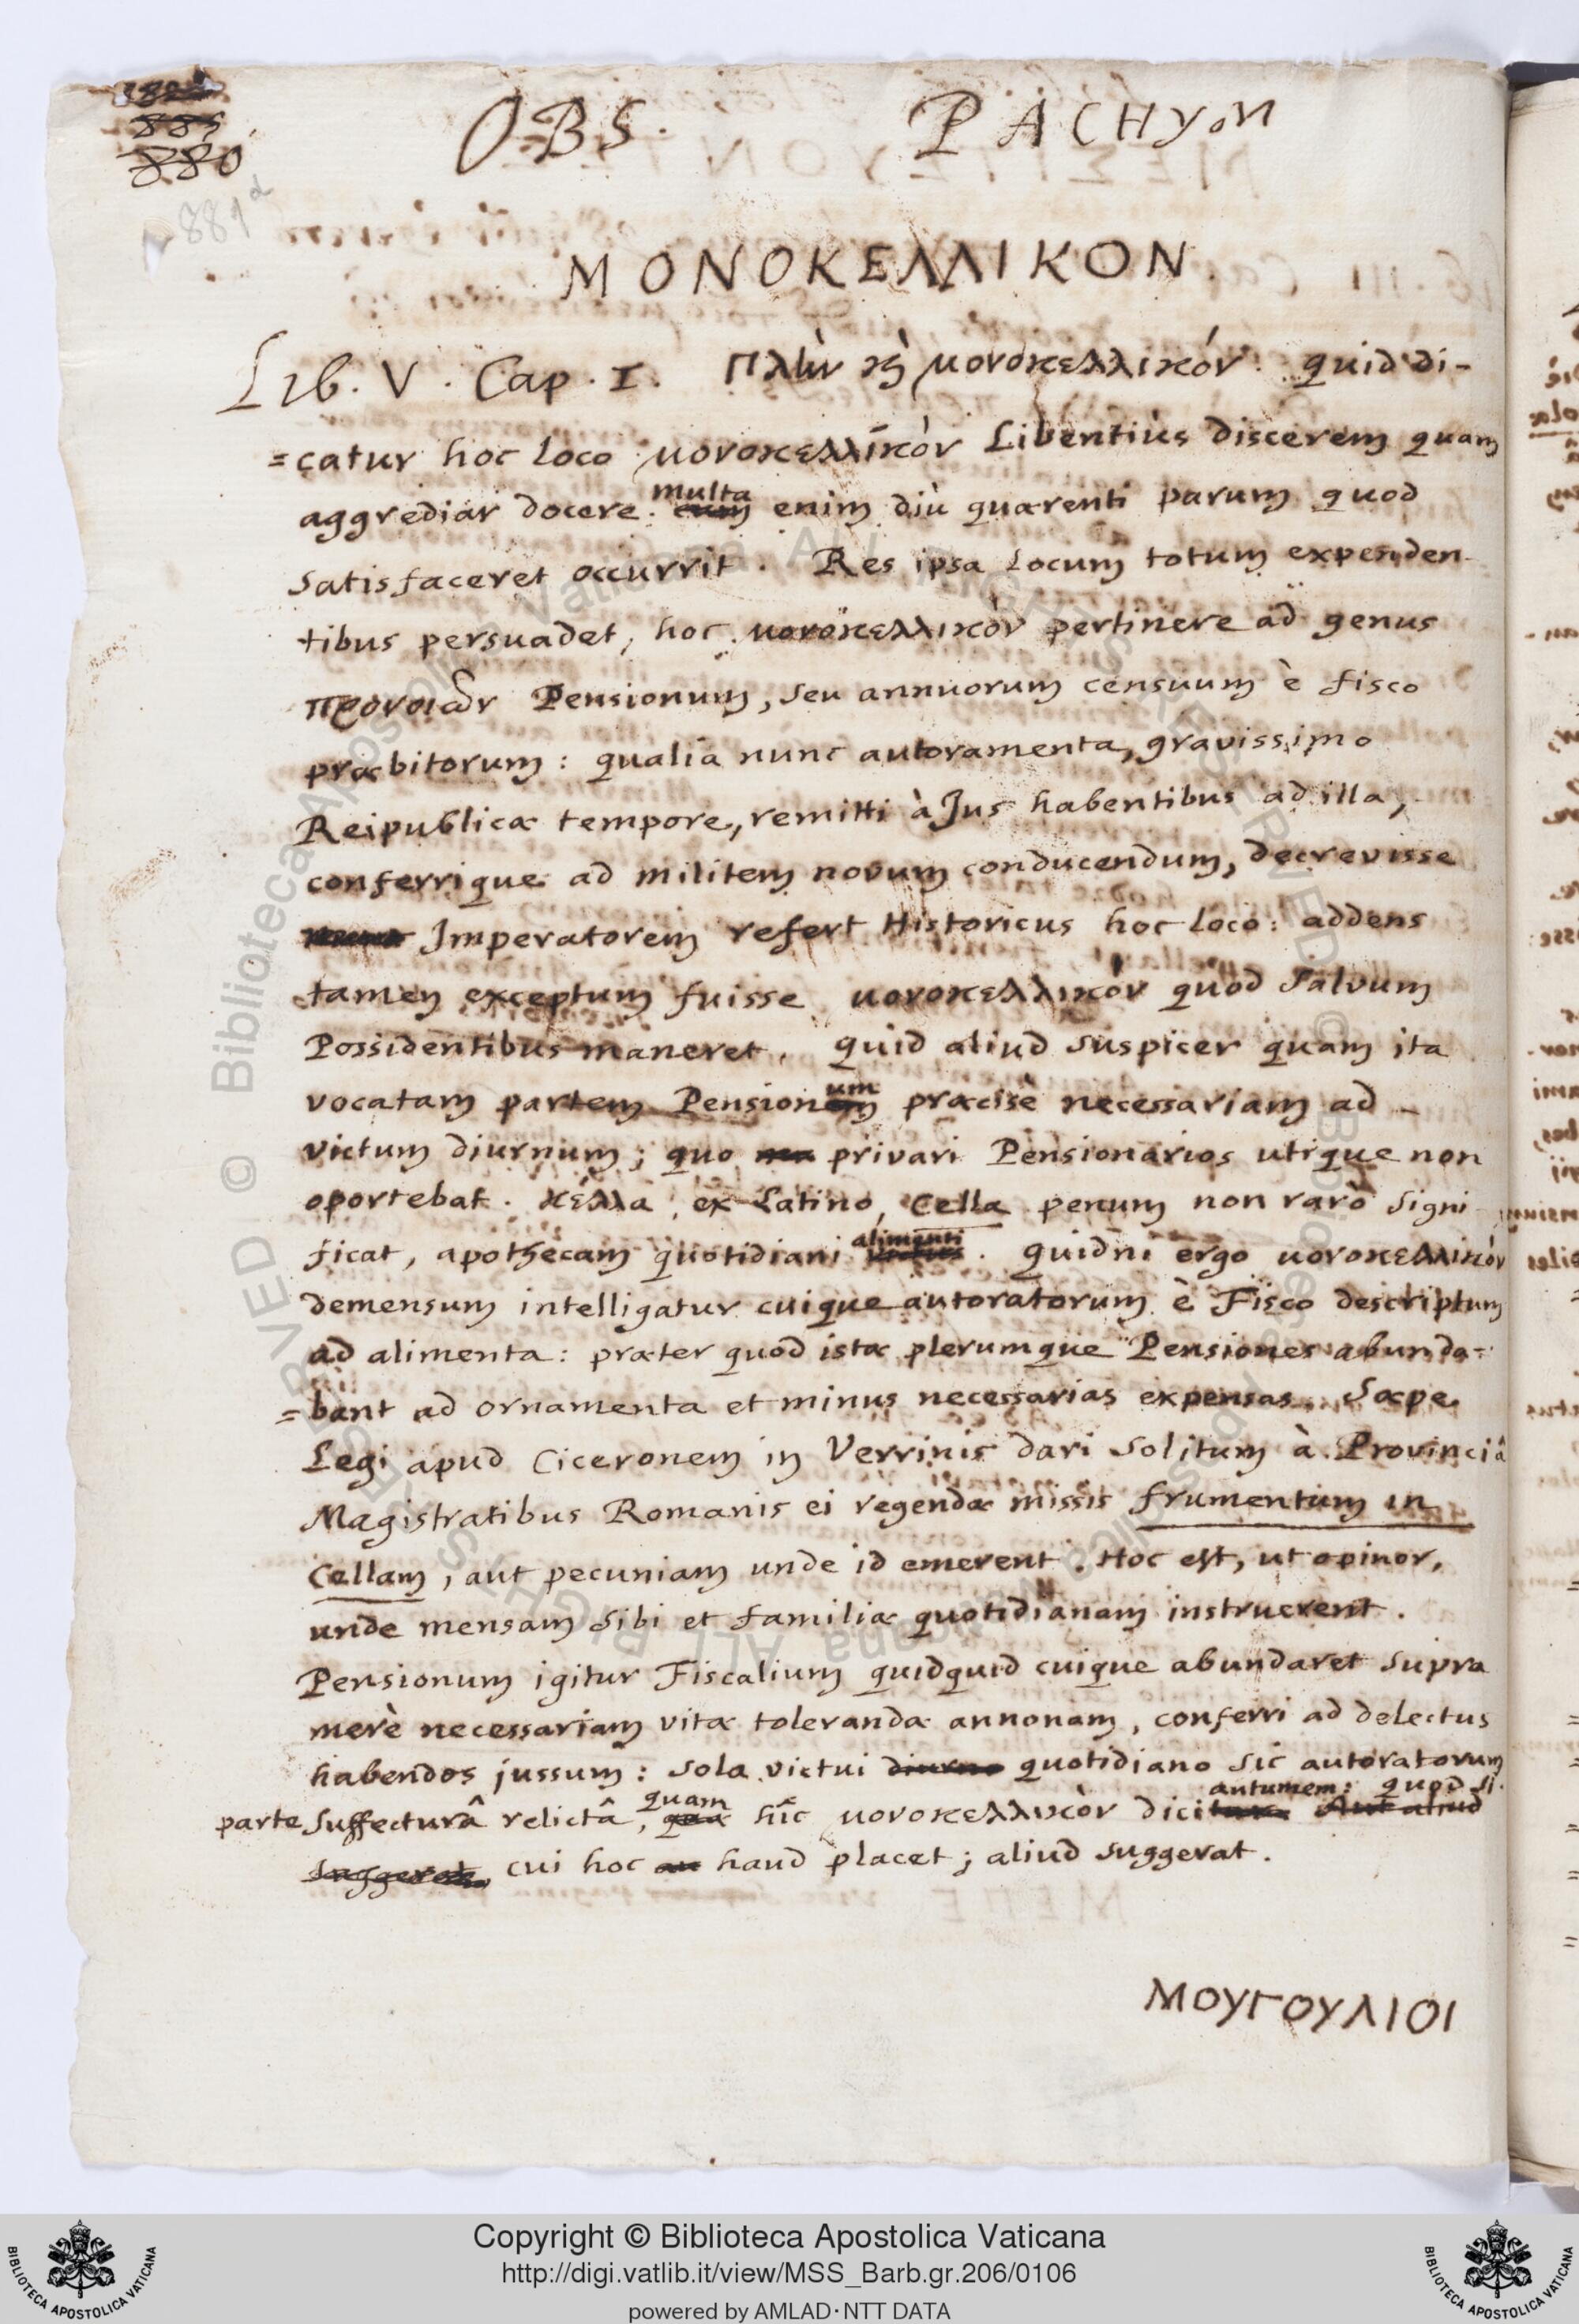 885
880
881a
OBS. PACHYM
ΜΟΝΟΚΕΛΛΙΚΟΝ.
Lib. V. Cap. I. πλὴν καὶ μονοκελλικόν. quid di-
=catur hoc loco μονοκελλικὸν Libentiùs discerem quam
aggrediar docere. multa enim diù quærenti parum quod
satisfaceret occurrit. Res ipsa locum totum expenden-
tibus persuadet, hoc μονοκελλικὸν pertinere ad genus
προνοιῶν Pensionum, seu annuorum censuum è fisco
præbitorum: qualia nunc autoramenta, gravissimo
Reipublicæ tempore, remitti à Jus habentibus ad illa,
conferrique ad militem novum conducendum, decrevisse
Imperatorem refert Historicus hoc loco: addens
tamen exceptum fuisse μονοκελλικόν quod salvum
Possidentibus maneret. quid aliud suspicer quam ita
vocatam partem Pensionum præcisè necessariam ad
victum diurnum; quo privari Pensionarios utique non
oportebat. κέλλα, ex Latino, Cella penum non rarò signi
ficat, apothecam quotidiani alimenti. quidni ergo μονοκελλικὸν
demensum intelligatur cuique autoratorum è Fisco descriptum
ad alimenta: præter quod istæ plerumque Pensiones abunda=
=bant ad ornamenta et minus necessarias expensas. Sæpe
Legi apud Ciceronem in Verrinis dari solitum à Provinciâ
Magistratibus Romanis ei regendæ missis frumentum in
Cellam, aut pecuniam unde id emerent. Hoc est, ut opinor,
unde mensam sibi et familiæ quotidianam instruerent.
Pensionum igitur Fiscalium quidquid cuique abundaret supra
merè necessariam vitæ tolerandæ annonam, conferri ad delectus
habendos jussum: sola victui diurno quotidiano sic autoratorum
parte suffecturâ relictâ, quam hîc μονοκελλικὸν dici autumem: quod si.
Aut aliud
suggerat, cui hoc haud placet; aliud suggerat.
ΜΟΥΓΟΥΛΙΟΙ
Copyright © Biblioteca Apostolica Vaticana
http://digi.vatlib.it/view/MSS_Barb.gr.206/0106
powered by AMLAD·NTT DATA
BIBLIOTECA APOSTOLICA VATICANA
BIBLIOTECA APOSTOLICA VATICANA